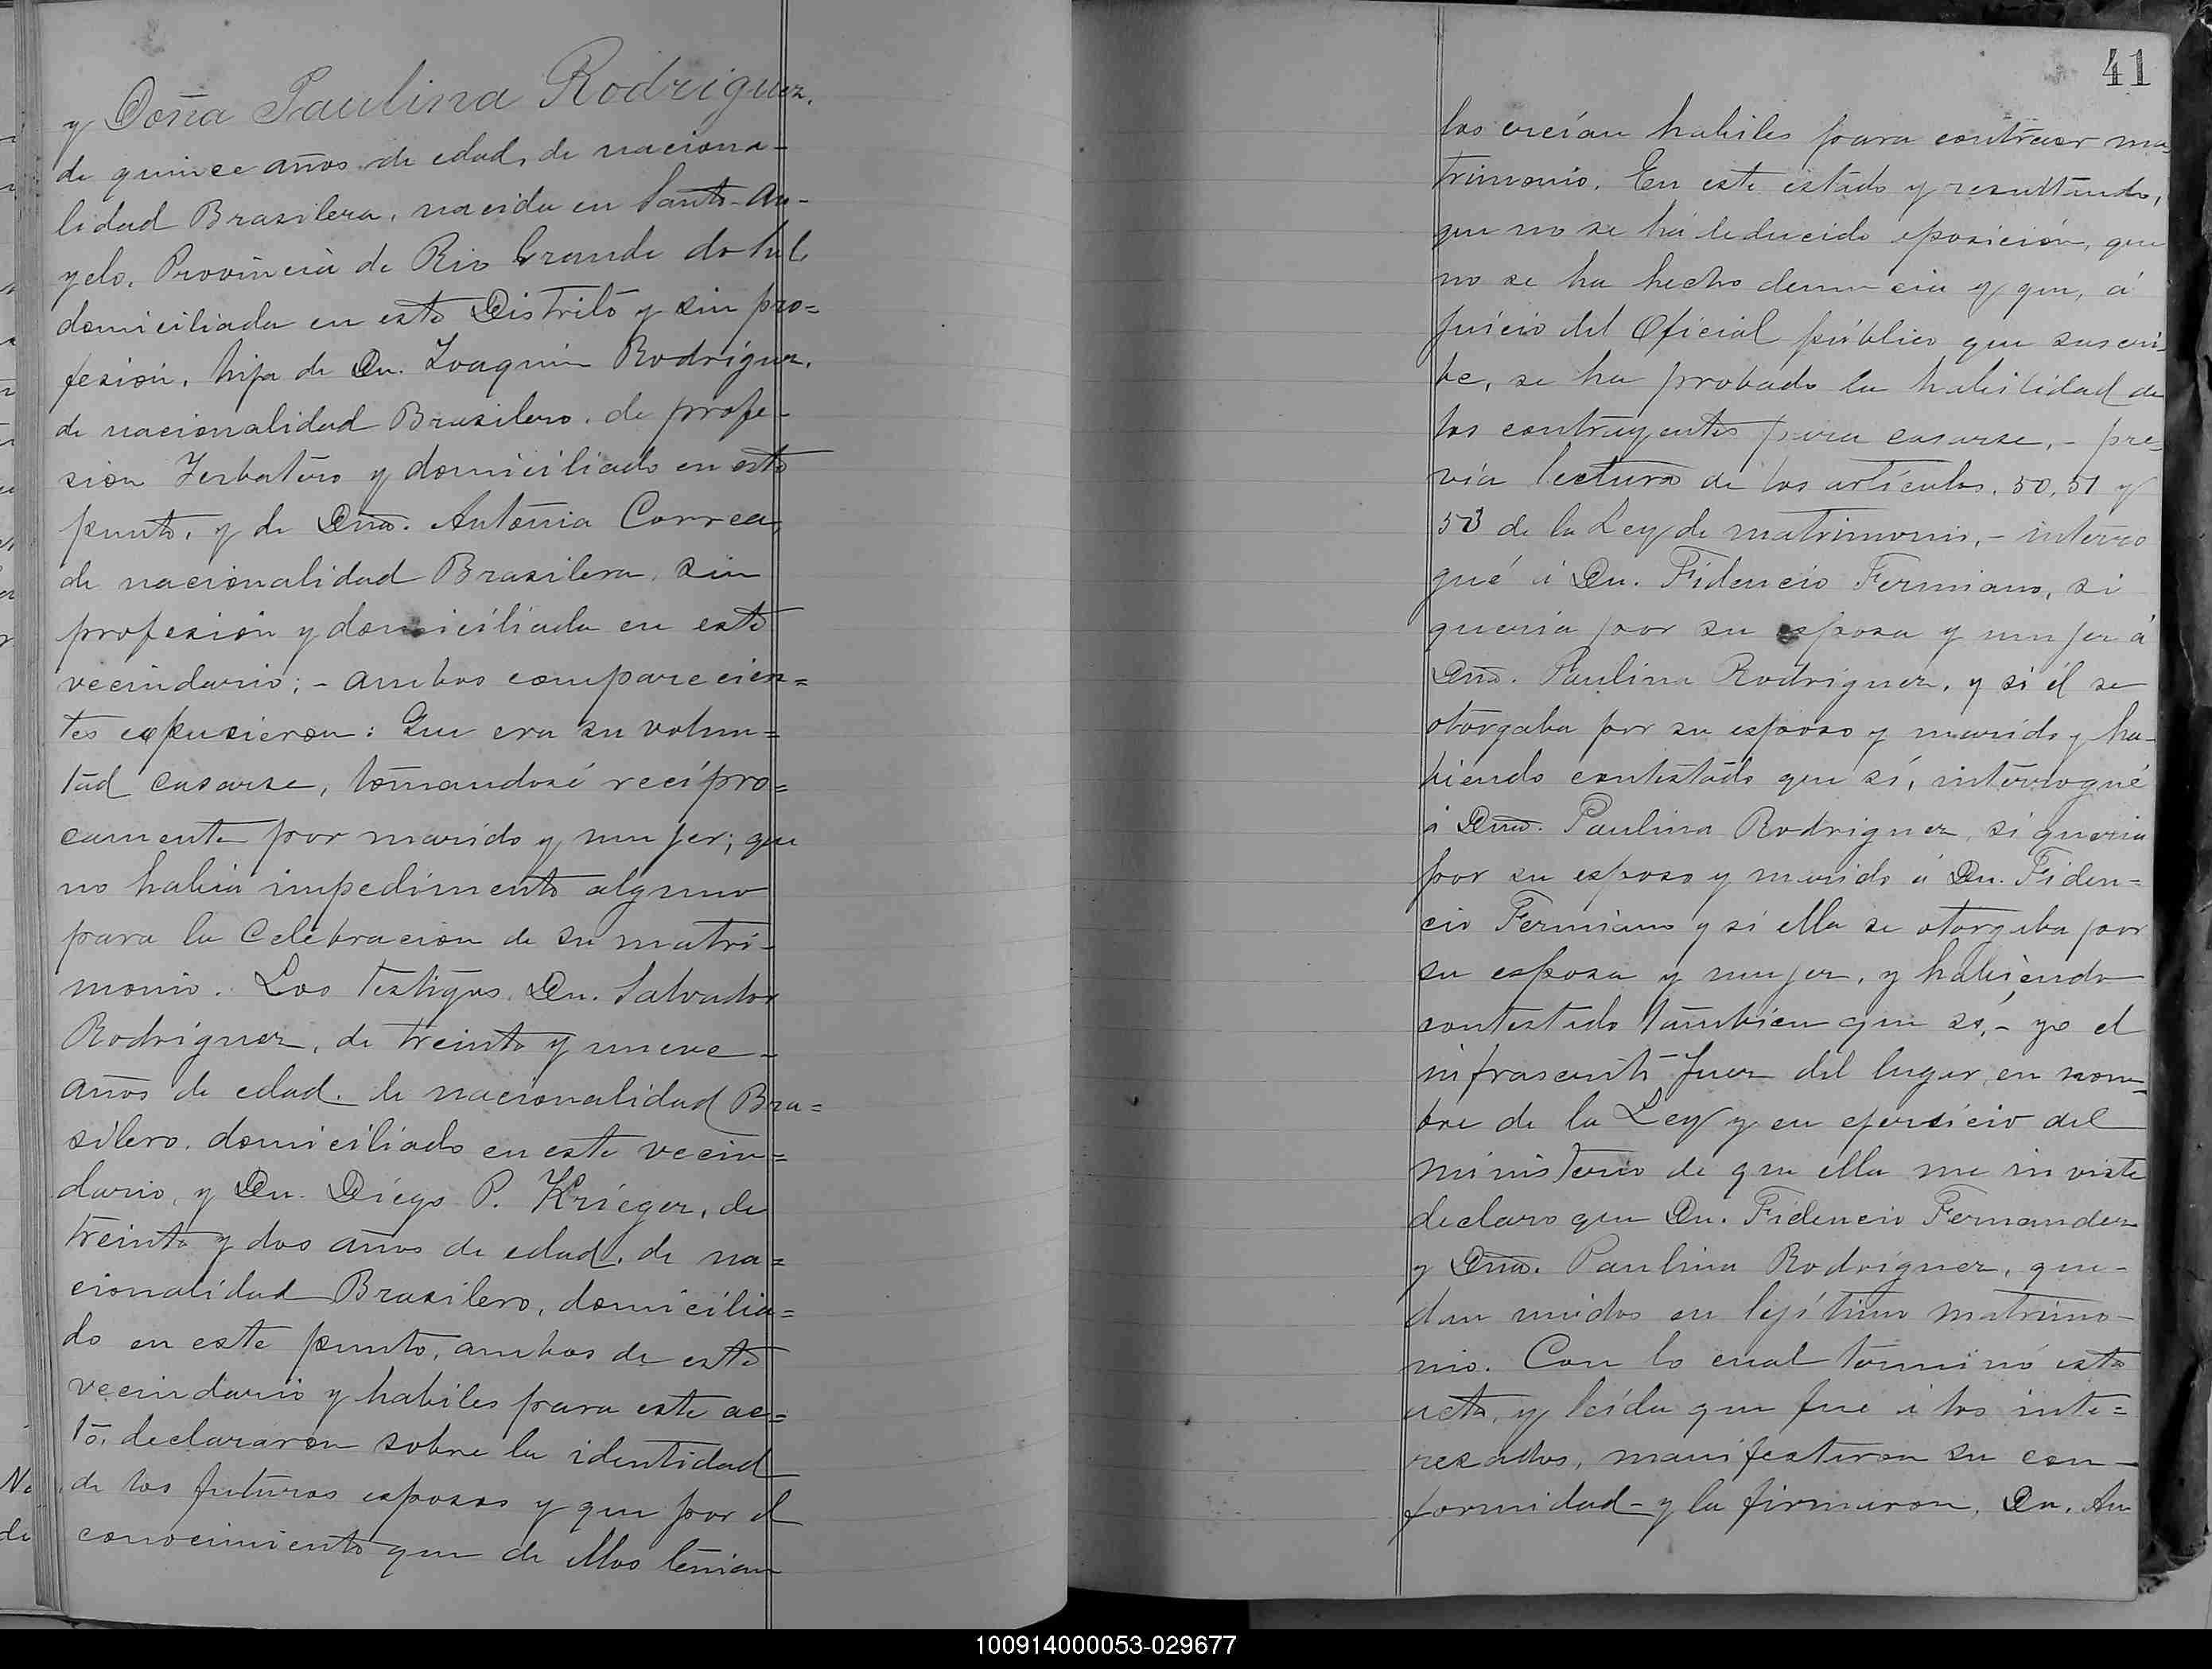 y Doña Paulina Rodriguez,
de quince años de edad, de naciona-
lidad Brasilera, nacida en Santo An-
gelo, Provincia de Rio Grande do Sul,
domiciliada en este Distrito y sin pro=
fesión, hija de Dn. Joaquin Rodriguez,
de nacionalidad Brasilero, de profe-
sion Yerbatero y domiciliado en este
punto, y de Dna. Antonia Correa,
de nacionalidad Brasilera, sin
profesión y domiciliada en este
vecindario; - ambos comparecien=
tes expusieron: Que era su volun=
tad casarse, tomandosé recípro=
camente por marido y mujer; que
no habia impedimento alguno
para la Celebracion de su matri-
monio. Los testigos, Dn. Salvador
Rodriguez, de treinta y nueve
años de edad, de nacionalidad Bra=
silero, domiciliado en este vecin=
dario, y Dn. Diego P. Krieger, de
treinta y dos años de edad, de na=
cionalidad Brasilero, domicilia=
do en este punto, ambos de este
vecindario y habiles para este ac=
to, declararon sobre la identidad
de los futuros esposos y que por el
conocimiento que de ellos tenian
41
los creían habiles para contraer ma-
trimonio. En este estado y resultando,
que no se há deducido oposición, que
no se ha hecho denuncia y que, á
juicio del Oficial público que suscri-
be, se ha probado la habilidad de
los contrayentes para casarse, - pre=
via lectura de los artículos, 50, 51 y
53 de la Ley de matrimonio, - interro
gué á Dn. Fidencio Fermiano, si
queria por su esposa y mujer á
Dna. Paulina Rodriguez, y si él se
otorgaba por su esposo y marido y ha-
biendo contestado que sí, interrogué
á Dna. Paulina Rodriguez, si queria
por su esposo y marido á Dn. Fiden=
cio Fermiano y si ella se otorgaba por
su esposa y mujer, y habiendo
contestado tambien que sí, - yo el
infrascrito Juez del lugar, en nom-
bre de la Ley y en ejercicio del
ministerio de que ella me inviste
declaro que Dn. Fidencio Fernandez
y Dna. Paulina Rodriguez, que-
dan unidos en lejítimo matrimo-
nio. Con lo cual terminó esta
acta, y leída que fue á los inte=
resados, manifestaron su con-
formidad - y la firmaron, Dn. An
100914000053-029677